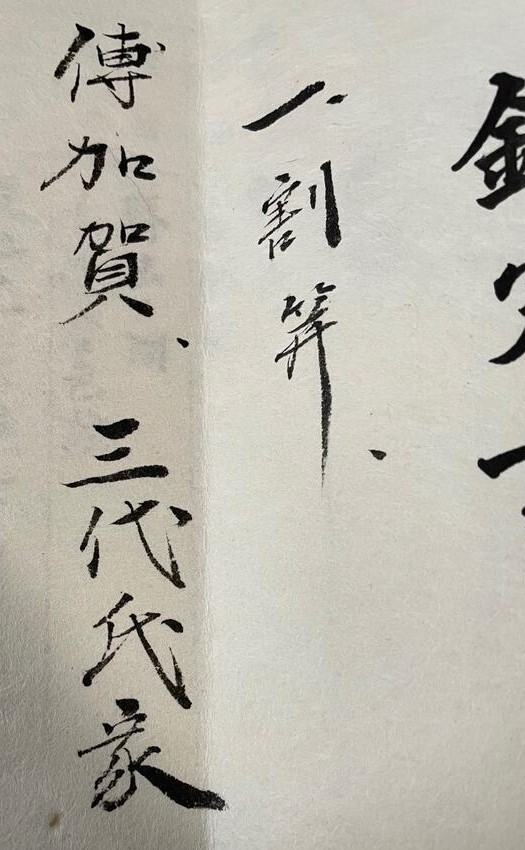 一、割笄、
傳加賀、三代氏家